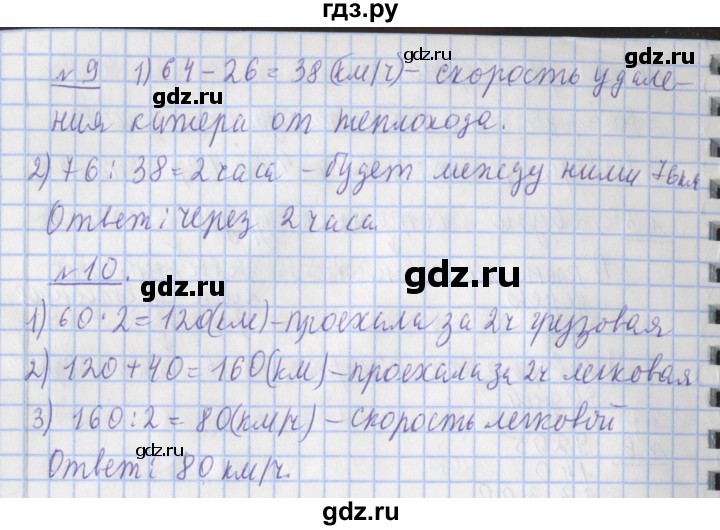 гдз.ру
№9 1) 64 - 26 = 38 (км/ч) - скорость удале-
gdz.ru gdz.ru
ния катера от теплохода.
2) 76 : 38 = 2 часа - будет между ними 76 км
gdz.ru gdz.ru
Ответ: через 2 часа
№10.
gdz.ru gdz.ru
1) 60 · 2 = 120 (км) - проехала за 2ч грузовая
2) 120 + 40 = 160 (км) - проехала за 2ч легковая
gdz.ru gdz.ru
3) 160 : 2 = 80 (км/ч) - скорость легковой
Ответ: 80 км/ч.
gdz.ru gdz.ru